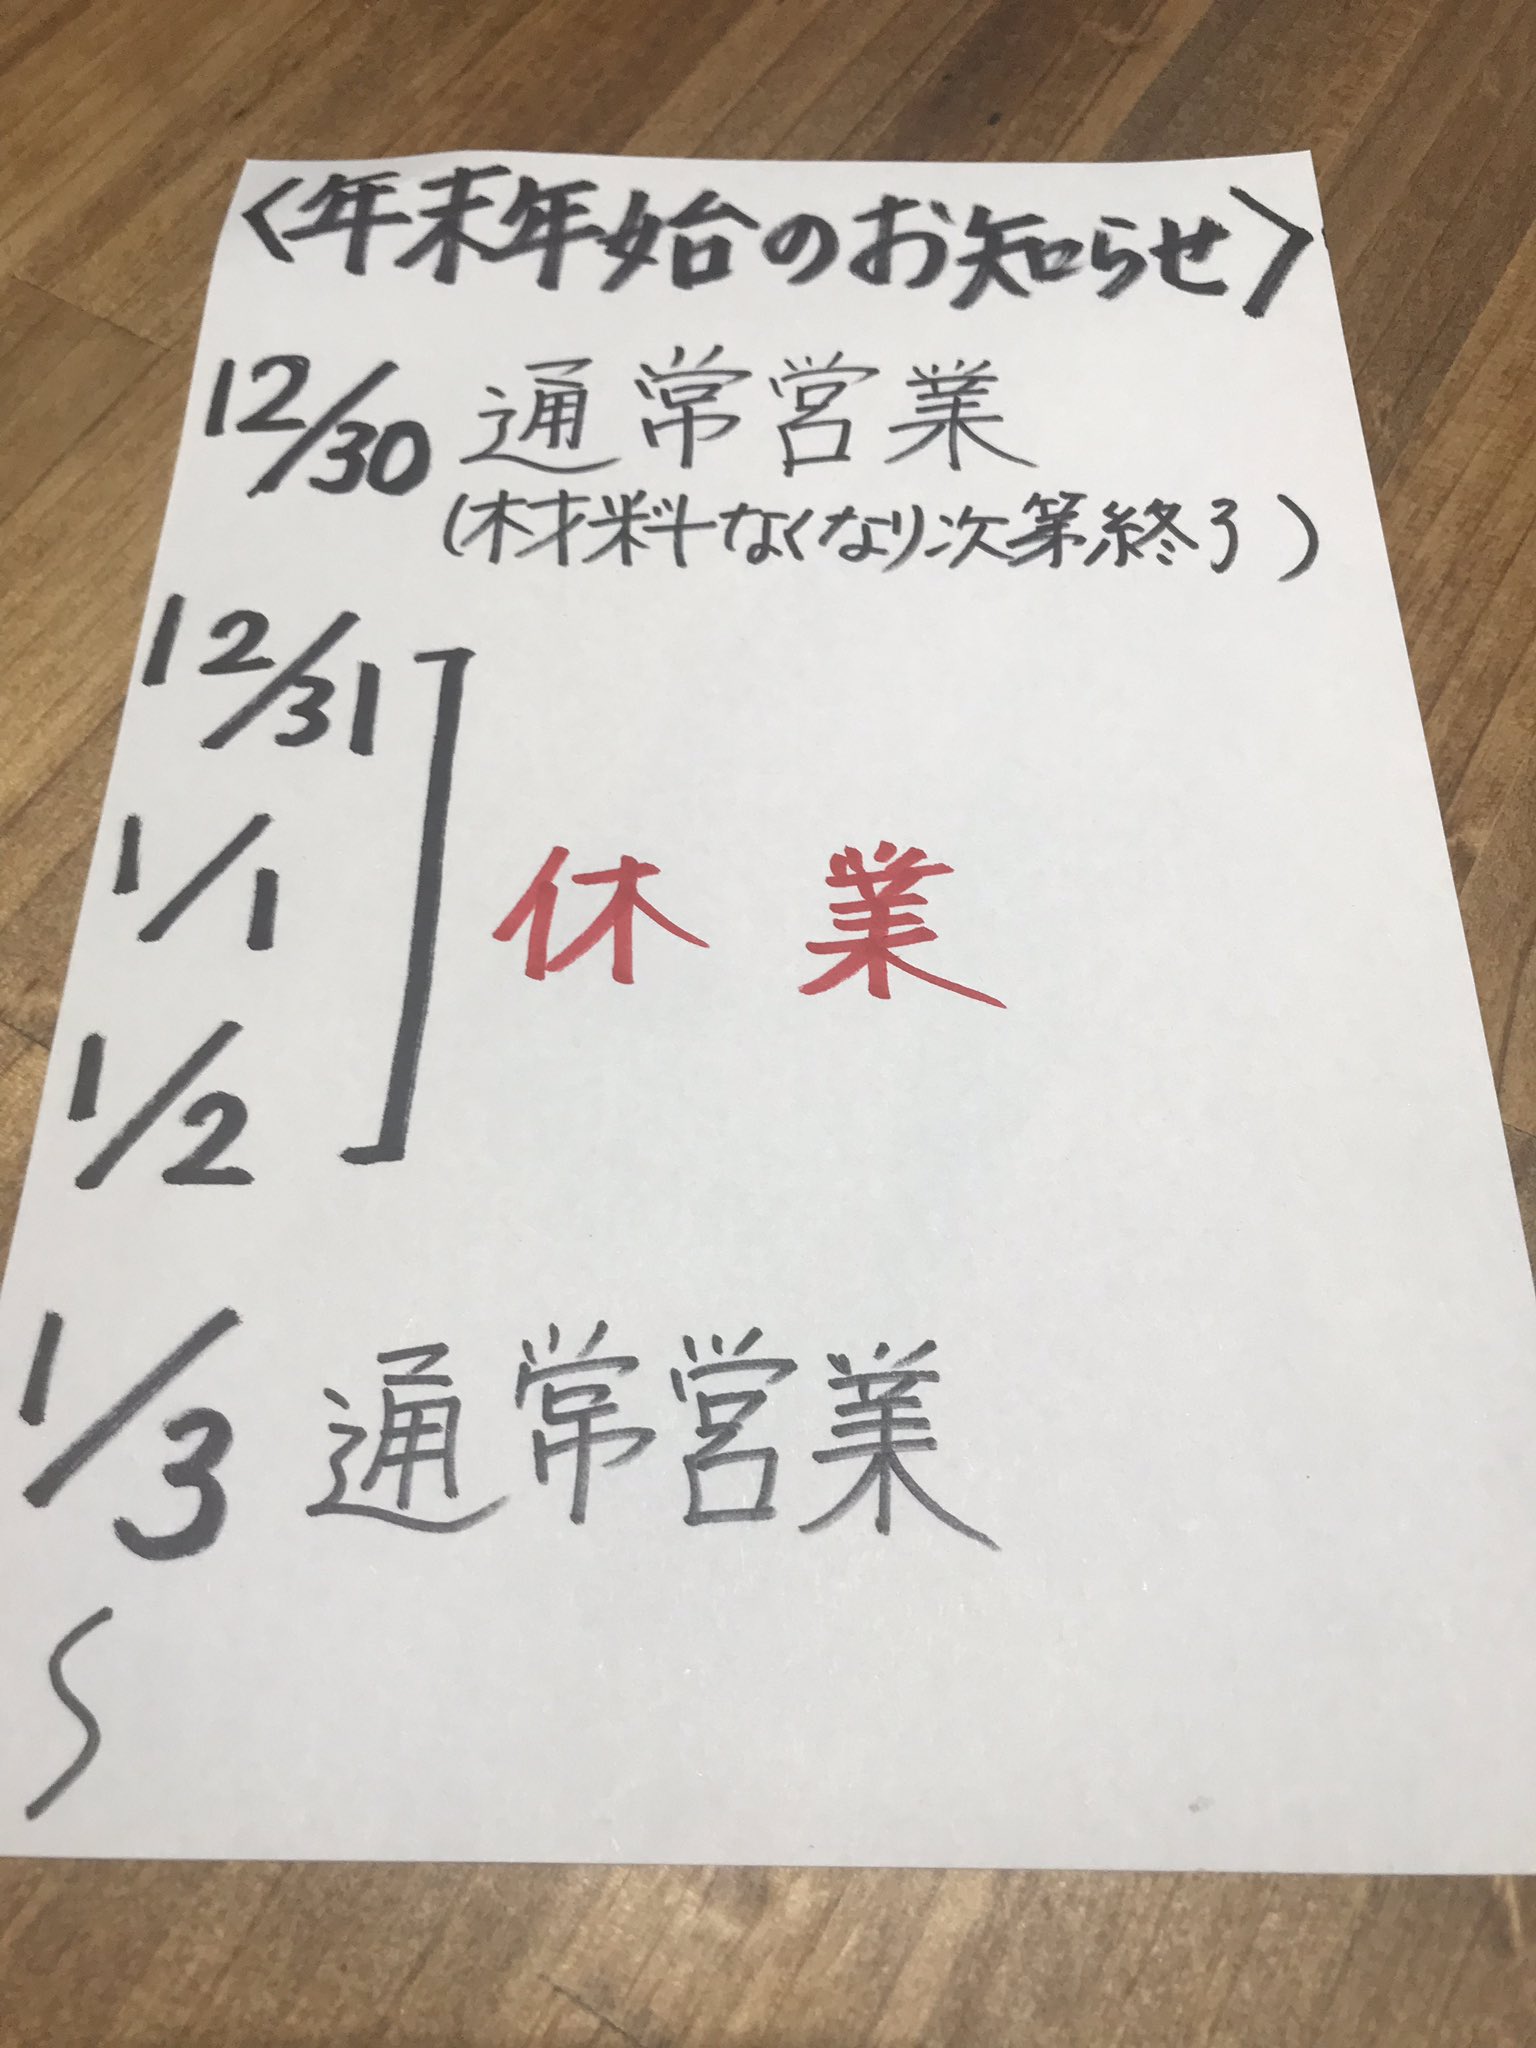 〈年末年始のお知らせ〉
12/30 通常営業
(材料なくなり次第終了)
12/31
1/1
休業
1/2
1/3 通常営業
〜